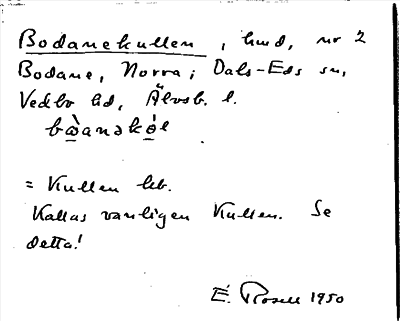 Bodanekullen, hmd, nr 2
Bodane, Norra; Dals-Eds sn,
Vedbo hd, Älvsb. l.
= Kullen leb.
Kallas vanligen Kullen. Se
detta!
E. Rosell 1950